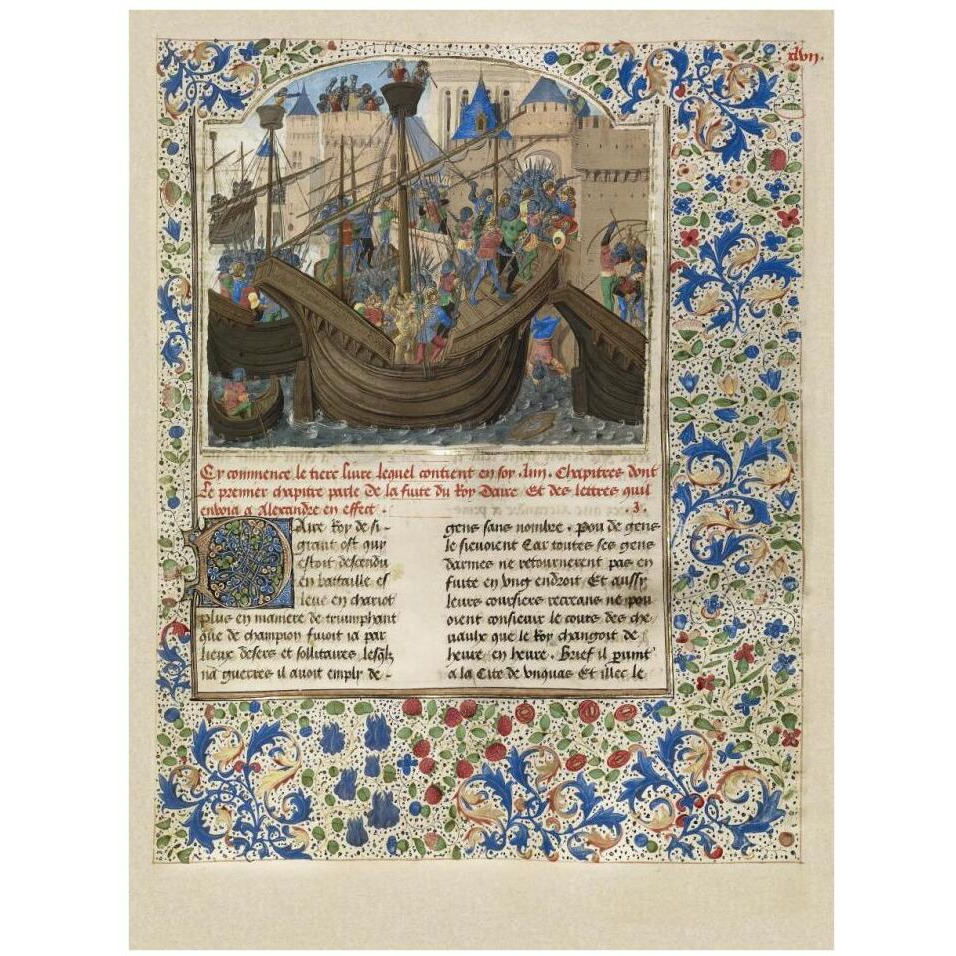 xlvij.
Cy commence le tiers livre lequel contient en soy .iiii. Chapitres dont
Le premier chapitre parle de la fuite du Roy Daire Et des lettres quil
envoia a Alexandre en effect . 3.
Daire Roy de si -
grant ost qui
estoit descendu
en bataille es
leue en chariot
plus en maniere de triumphant
que de champion fuioit ia par
lieux desers et sollitaires lesqlz
na guerres il avoit emply de -
gens sans nombre . Pou de gens
le sievoient Car toutes ses gens
darmes ne retournerent pas en
fuite en ung endroit Et aussy
leurs coursiers recreans ne pou
oient consieuir le cours des che
vaulx que le Roy changoit de
heure en heure . Brief il parvint
a la Cite de unquas Et illec le